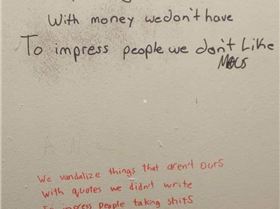 With money we don't have
To impress people we don't Like
We vandalize things that aren't ours
with quotes we didn't write
To impress people taking shits